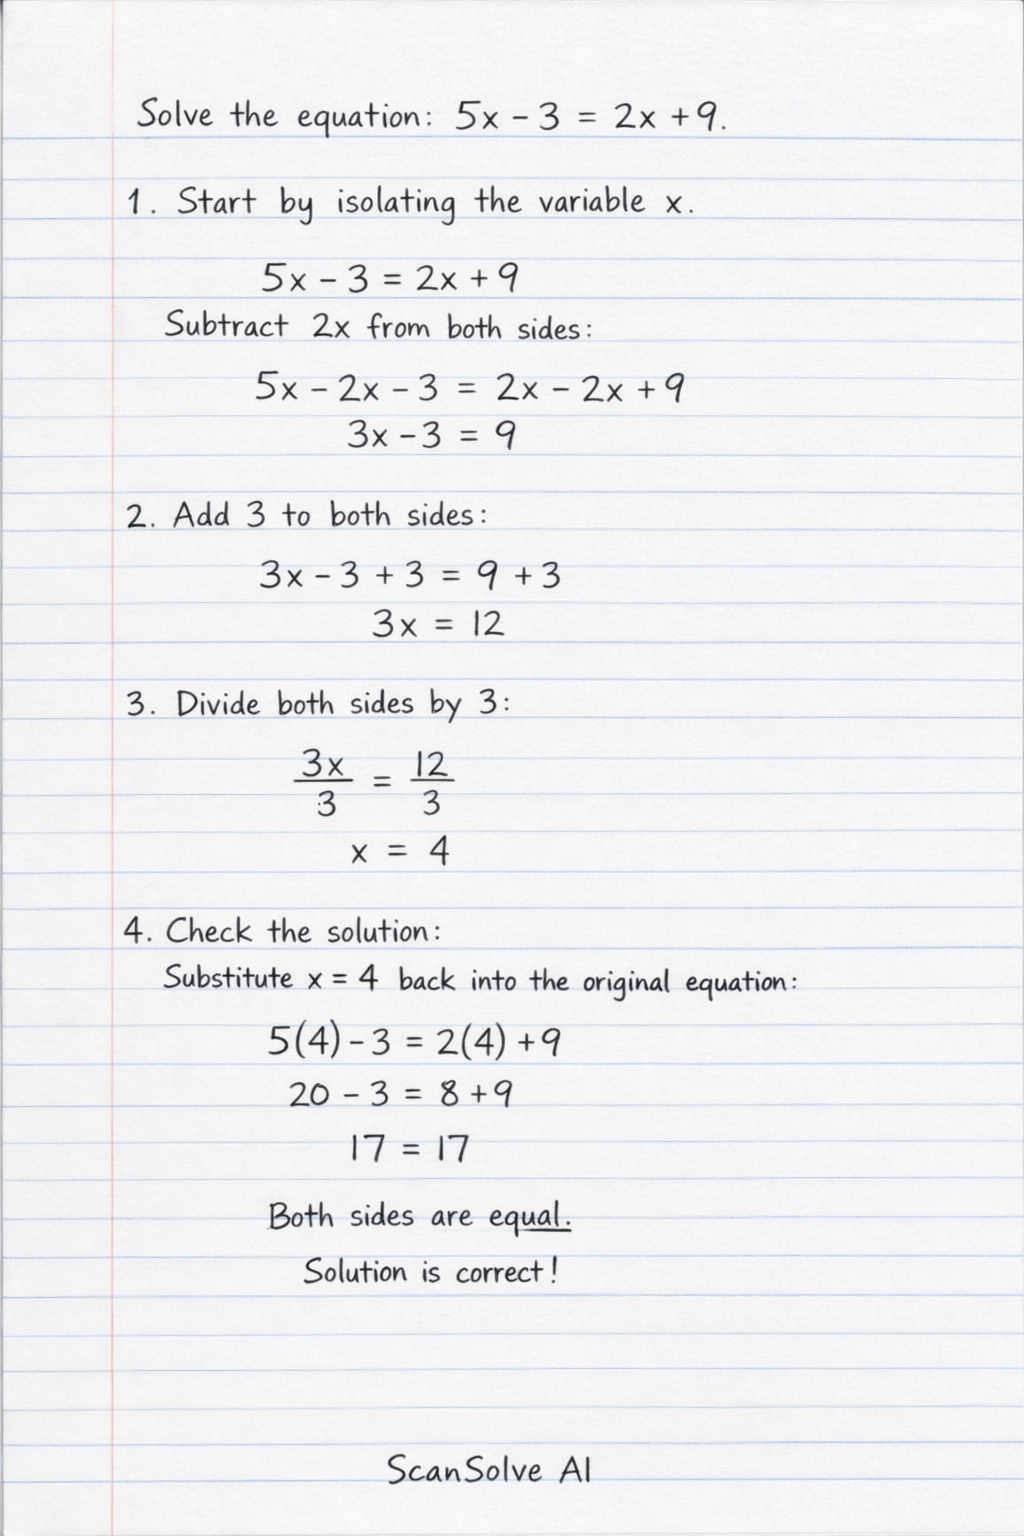 Solve the equation: 5x - 3 = 2x + 9.
1. Start by isolating the variable x.
5x - 3 = 2x + 9
Subtract 2x from both sides:
5x - 2x - 3 = 2x - 2x + 9
3x - 3 = 9
2. Add 3 to both sides:
3x - 3 + 3 = 9 + 3
3x = 12
3. Divide both sides by 3:
3x/3 = 12/3
x = 4
4. Check the solution:
Substitute x = 4 back into the original equation:
5(4) - 3 = 2(4) + 9
20 - 3 = 8 + 9
17 = 17
Both sides are equal.
Solution is correct!
ScanSolve AI